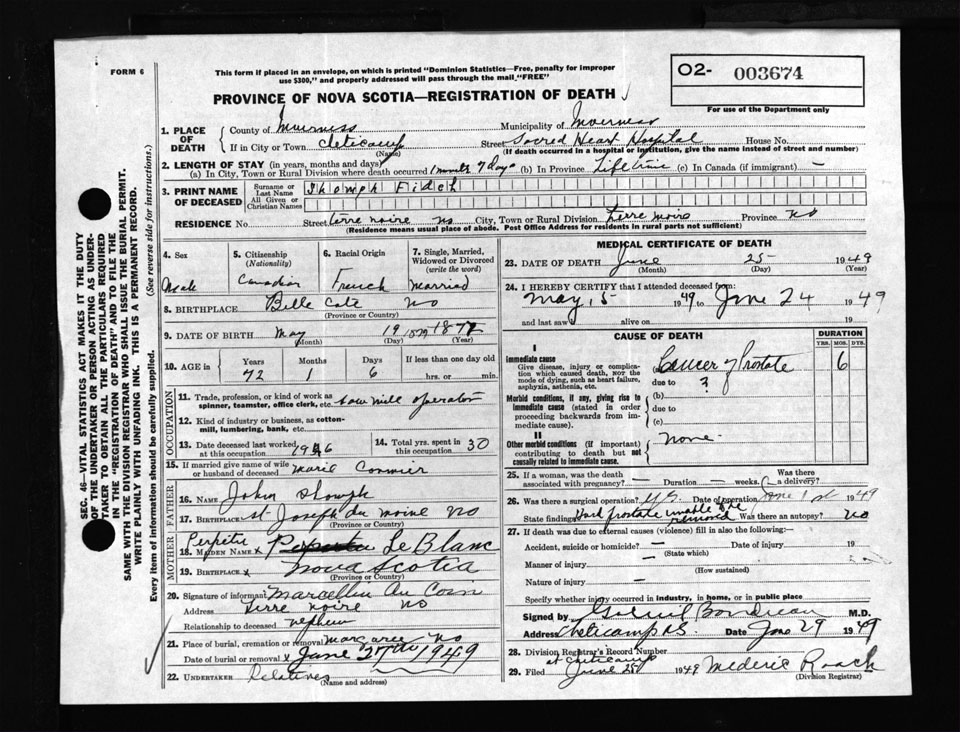 FORM 6
This form if placed in an envelope, on which is printed "Dominion Statistics—Free, penalty for improper
use $300," and properly addressed will pass through the mail "FREE"
PROVINCE OF NOVA SCOTIA—REGISTRATION OF DEATH
02- 003674
For use of the Department only
1. PLACE OF DEATH
County of Inverness Municipality of Inverness
If in City or Town Cheticamp Street Sacred Heart Hospital House No.
(Name) (If death occurred in a hospital or institution, give the name instead of street and number)
2. LENGTH OF STAY (in years, months and days)
(a) In City, Town or Rural Division where death occurred 1 month 7 days (b) In Province Life time (c) In Canada (if immigrant) —
3. PRINT NAME OF DECEASED
Surname or Last Name
All Given or Christian Names
RESIDENCE No. Street terre noire NS City, Town or Rural Division Terre Noire Province NS
(Residence means usual place of abode. Post Office Address for residents in rural parts not sufficient)
4. Sex
Male
5. Citizenship
(Nationality)
Canadian
6. Racial Origin
French
7. Single, Married, Widowed or Divorced
(write the word)
married
8. BIRTHPLACE Belle Cote NS
(Province or Country)
9. DATE OF BIRTH May 19 1877
(Month) (Day) (Year)
10. AGE in
Years Months Days If less than one day old
72 1 6 hrs. or min.
OCCUPATION
11. Trade, profession, or kind of work as
spinner, teamster, office clerk, etc. saw mill operator
12. Kind of industry or business, as cotton-
mill, lumbering, bank, etc.
13. Date deceased last worked
at this occupation 1946
14. Total yrs. spent in
this occupation 30
15. If married give name of wife
or husband of deceased Marie Cormier
FATHER
16. Name John
17. Birthplace St Joseph du moine NS
(Province or Country)
MOTHER
18. Maiden Name x Perpetu LeBlanc
19. Birthplace x Nova Scotia
(Province or Country)
20. Signature of informant Marcellin Au Coin
Address Terre noire NS
Relationship to deceased nephew
21. Place of burial, cremation or removal Margaree NS
Date of burial or removal x June 27th 1949
22. UNDERTAKER Relatives
(Name and address)
MEDICAL CERTIFICATE OF DEATH
23. DATE OF DEATH June 25 1949
(Month) (Day) (Year)
24. I HEREBY CERTIFY that I attended deceased from:
May 15 1949 to June 24 1949
and last saw alive on 19
CAUSE OF DEATH
DURATION
YRS. MOS. DYS.
I
Immediate cause
Give disease, injury or complica-
tion which caused death, NOT the
mode of dying, such as heart failure,
asphyxia, asthenia, etc.
(a) Cancer of Prostate 6
due to ?
Morbid conditions, if any, giving rise to
immediate cause (stated in order
proceeding backwards from im-
mediate cause).
(b)
due to
(c)
II
Other morbid conditions (if important)
contributing to death but not
causally related to immediate cause.
None.
25. If a woman, was the death
associated with pregnancy? — Duration — weeks. Was there a delivery? —
26. Was there a surgical operation? yes Date of operation June 1st 1949
State findings Hard prostate unable to be removed Was there an autopsy? No
27. If death was due to external causes (violence) fill in also the following:—
Accident, suicide or homicide? — Date of injury 19
(State which)
Manner of injury —
(How sustained)
Nature of injury —
Specify whether injury occurred in industry, in home, or in public place
Signed by M.D.
Address Cheticamp N.S. Date June 29 1949
28. Division Registrar's Record Number
29. Filed at Cheticamp June 25 1949 Mederic Roach
(Division Registrar)
SEC. 46—VITAL STATISTICS ACT MAKES IT THE DUTY
OF THE UNDERTAKER OR PERSON ACTING AS UNDER-
TAKER TO OBTAIN ALL THE PARTICULARS REQUIRED
IN THE "REGISTRATION OF DEATH" AND TO FILE THE
SAME WITH THE DIVISION REGISTRAR WHO SHALL ISSUE THE BURIAL PERMIT.
WRITE PLAINLY WITH UNFADING INK. THIS IS A PERMANENT RECORD.
Every item of information should be carefully supplied. (See reverse side for instructions.)